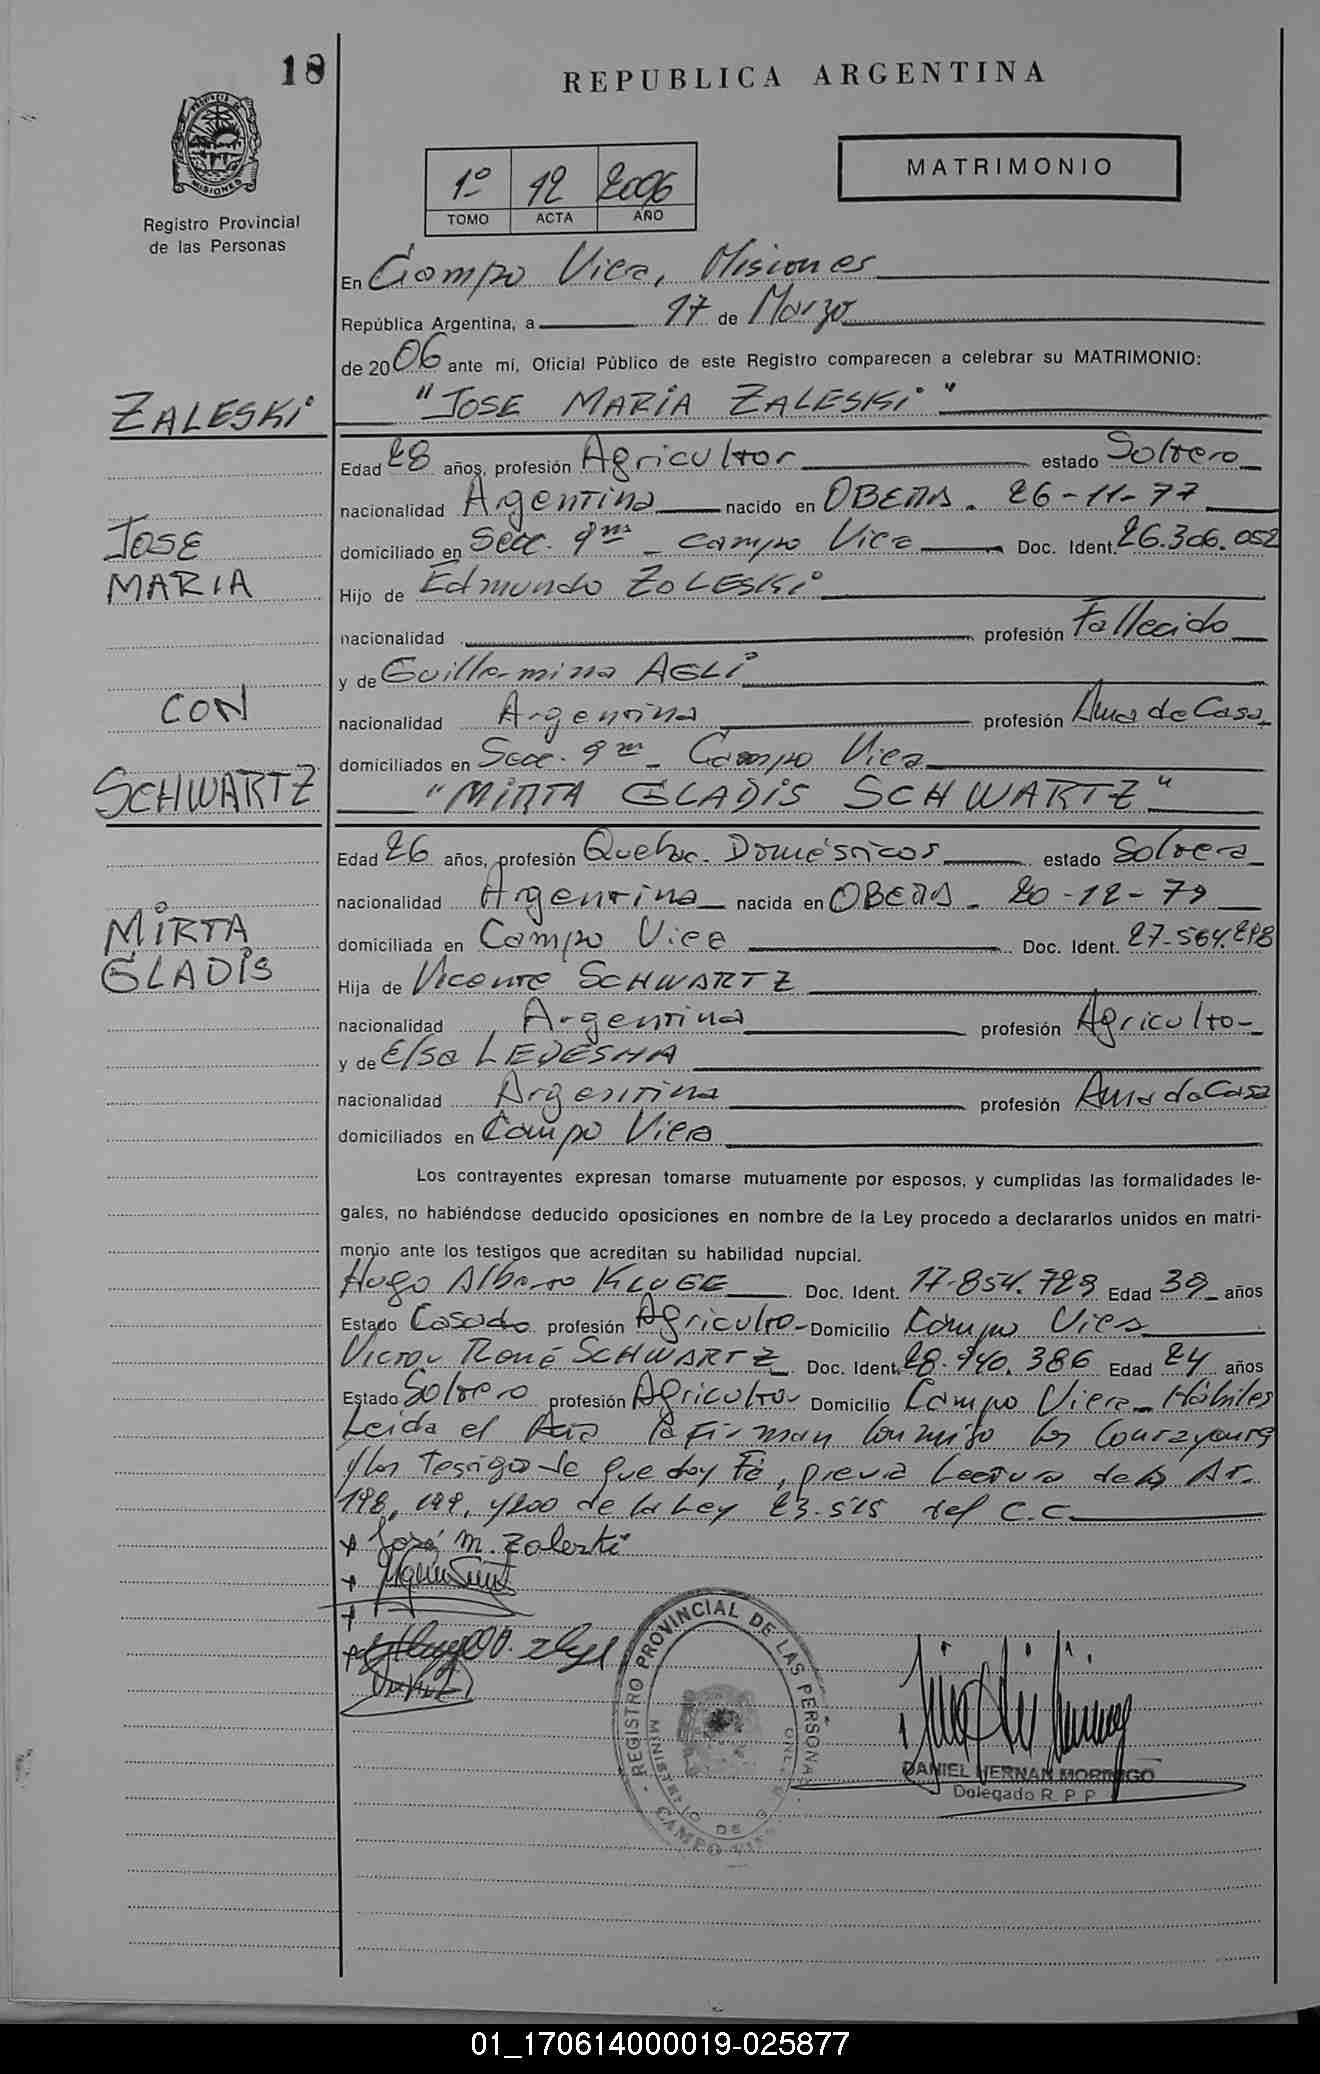 18
REPUBLICA ARGENTINA
PROVINCIA DE MISIONES
Registro Provincial
de las Personas
MATRIMONIO
1º 12 2006
TOMO ACTA AÑO
En Campo Viera, Misiones
República Argentina, a 17 de Marzo
de 2006 ante mí, Oficial Público de este Registro comparecen a celebrar su MATRIMONIO:
ZALESKI
"JOSE MARIA ZALESKI"
Edad 28 años, profesión Agricultor estado Soltero
nacionalidad Argentina nacido en OBERA. 26-11-77
JOSE
domiciliado en Secc. 9na - Campo Viera Doc. Ident. 26.306.052
MARIA
Hijo de Edmundo ZOLESKI
nacionalidad profesión Fallecido
y de Guillermina AGLI
CON
nacionalidad Argentina profesión Ama de Casa
domiciliados en Secc. 9na - Campo Viera
SCHWARTZ
"MIRTA GLADIS SCHWARTZ"
Edad 26 años, profesión Quehac. Domésticos estado Soltera
nacionalidad Argentina nacida en OBERA. 20-12-79
MIRTA
domiciliada en Campo Viera Doc. Ident. 27.564.298
GLADIS
Hija de Vicente SCHWARTZ
nacionalidad Argentina profesión Agricultor
y de Elsa LEDESMA
nacionalidad Argentina profesión Ama de Casa
domiciliados en Campo Viera
Los contrayentes expresan tomarse mutuamente por esposos, y cumplidas las formalidades le-
gales, no habiéndose deducido oposiciones en nombre de la Ley procedo a declararlos unidos en matri-
monio ante los testigos que acreditan su habilidad nupcial.
Hugo Alberto KLUGE Doc. Ident. 17.854.729 Edad 39 años
Estado Casado profesión Agricultor Domicilio Campo Viera
Victor René SCHWARTZ Doc. Ident. 28.940.386 Edad 24 años
Estado Soltero profesión Agricultor Domicilio Campo Viera - Hábiles
Leída el Acta la Firman conmigo los Contrayentes
y los Testigos de que doy Fé, previa Lectura de los Art.
198, 199, y 200 de la Ley 23.515 del C.C.
x José M. Zaleski
x
x
x
REGISTRO PROVINCIAL DE LAS PERSONAS
MINISTERIO DE
CAMPO VIERA
DANIEL HERNAN MORINIGO
Delegado R. P. P.
01_170614000019-025877